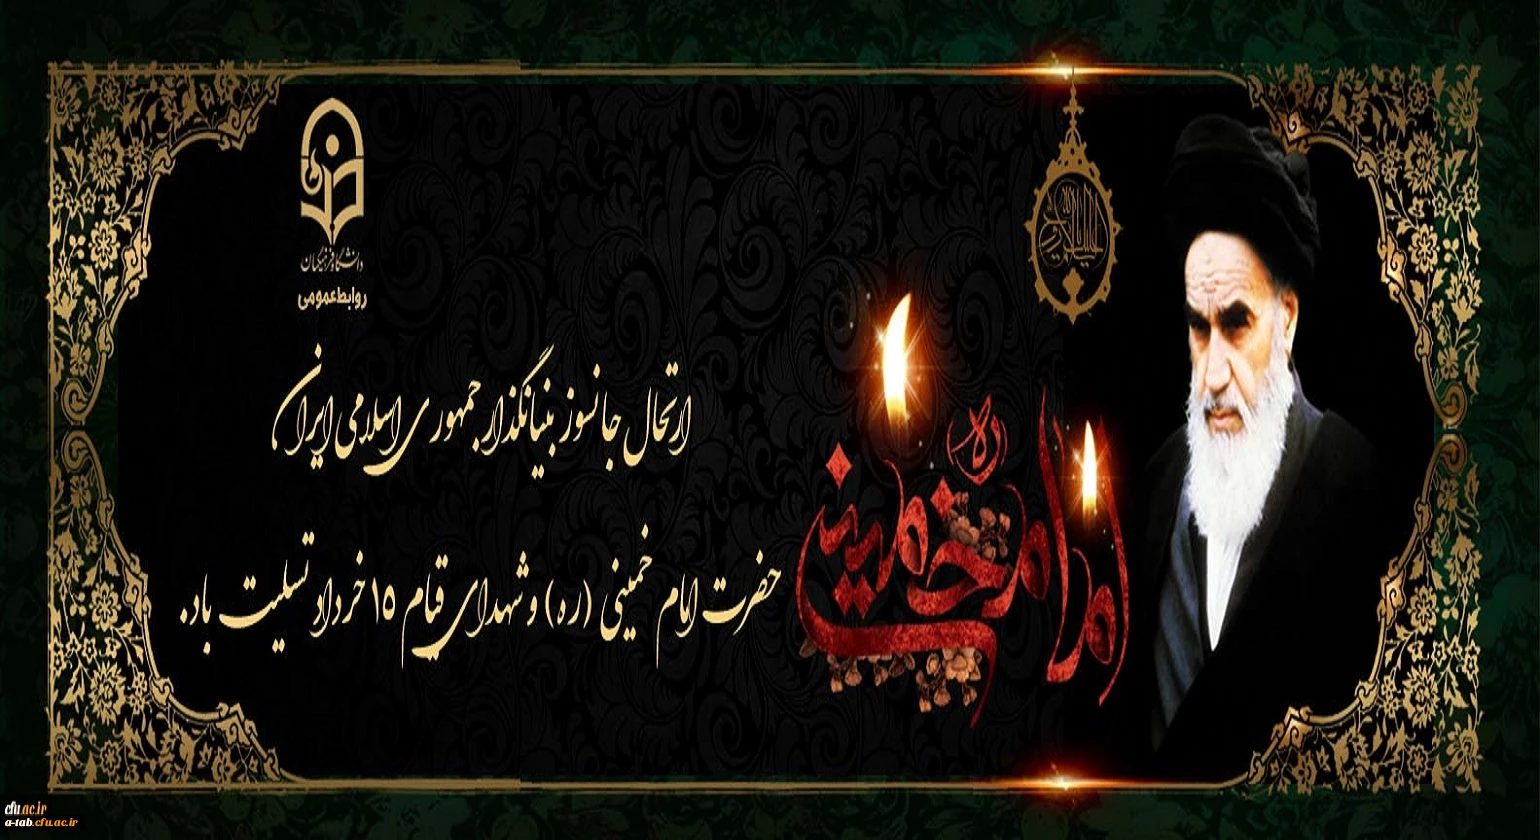 دانشگاه فرهنگیان
روابط عمومی
ارتحال جانسوز بنیانگذار جمهوری اسلامی ایران
حضرت امام خمینی (ره) و شهدای قیام ۱۵ خرداد تسلیت باد.
امام خمینی ره
cfu.ac.ir
a-tab.cfu.ac.ir